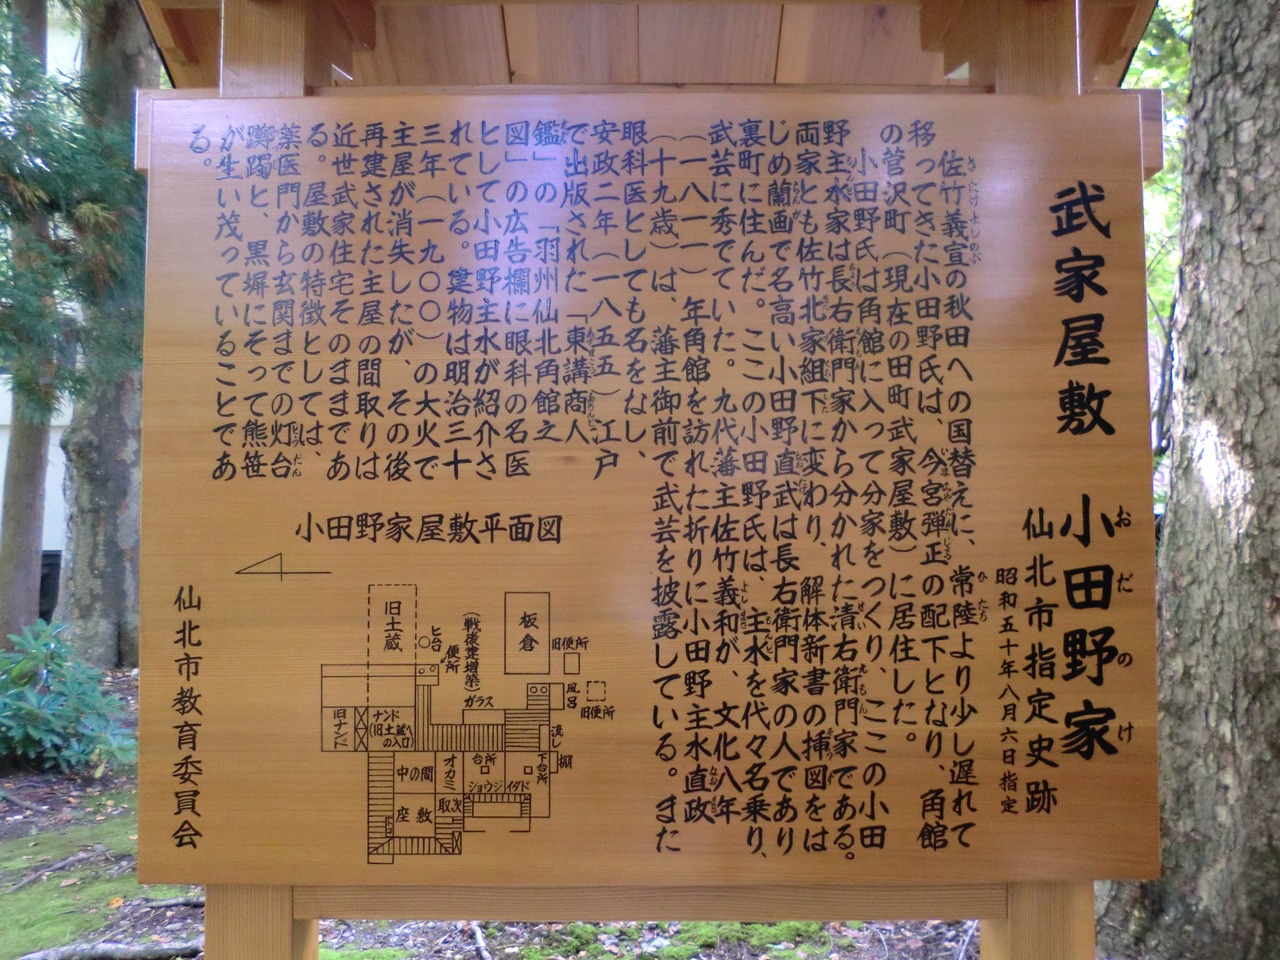 武家屋敷 小田野家
おだのけ
仙北市指定史跡
昭和五十年八月六日指定
佐竹義宣の秋田への国替えに、常陸より少し遅れて
移ってきた小田野氏は、今宮弾正の配下となり、角館
の菅沢町(現在の田町武家屋敷)に居住した。
小田野氏は角館に入って分家をつくり、ここの小田
野主水家は長右衛門家から分かれた清右衛門家である。
両家とも佐竹北家組下に変わり、解体新書の挿図をは
じめ蘭画で名高い小田野直武は長右衛門家の人であり
裏町に住んだ。ここの小田野氏は、主水を代々名乗り、
武芸に秀でていた。九代藩主佐竹義和が、文化八年
(一八一一)年角館を訪れた折りに小田野主水直政
(十九歳)は、藩主御前で武芸を披露している。また
眼科医としても名をなし、
安政二年(一八五五)江戸
で出版された「東講商人
鑑」の「羽州仙北角館之
図」の広告欄に眼科の名医
として小田野主水が紹介さ
れている。建物は明治三十
三年(一九〇〇)の大火で
主屋が消失したが、その後
再建された主屋の間取りは
近世武家住宅そのままであ
る。屋敷の特徴としては、
薬医門から玄関までの灯台
躑躅と、黒塀にそって熊笹
が生い茂っていることであ
る。
小田野家屋敷平面図
板倉
旧便所
旧土蔵
便所
(戦後建増築)
ガラス
風呂
旧便所
旧ナンド
ナンド
(旧土蔵への入口)
流し
棚
中の間
オカミ
台所
下台所
ショウジ
イタド
座敷
取次
仙北市教育委員会